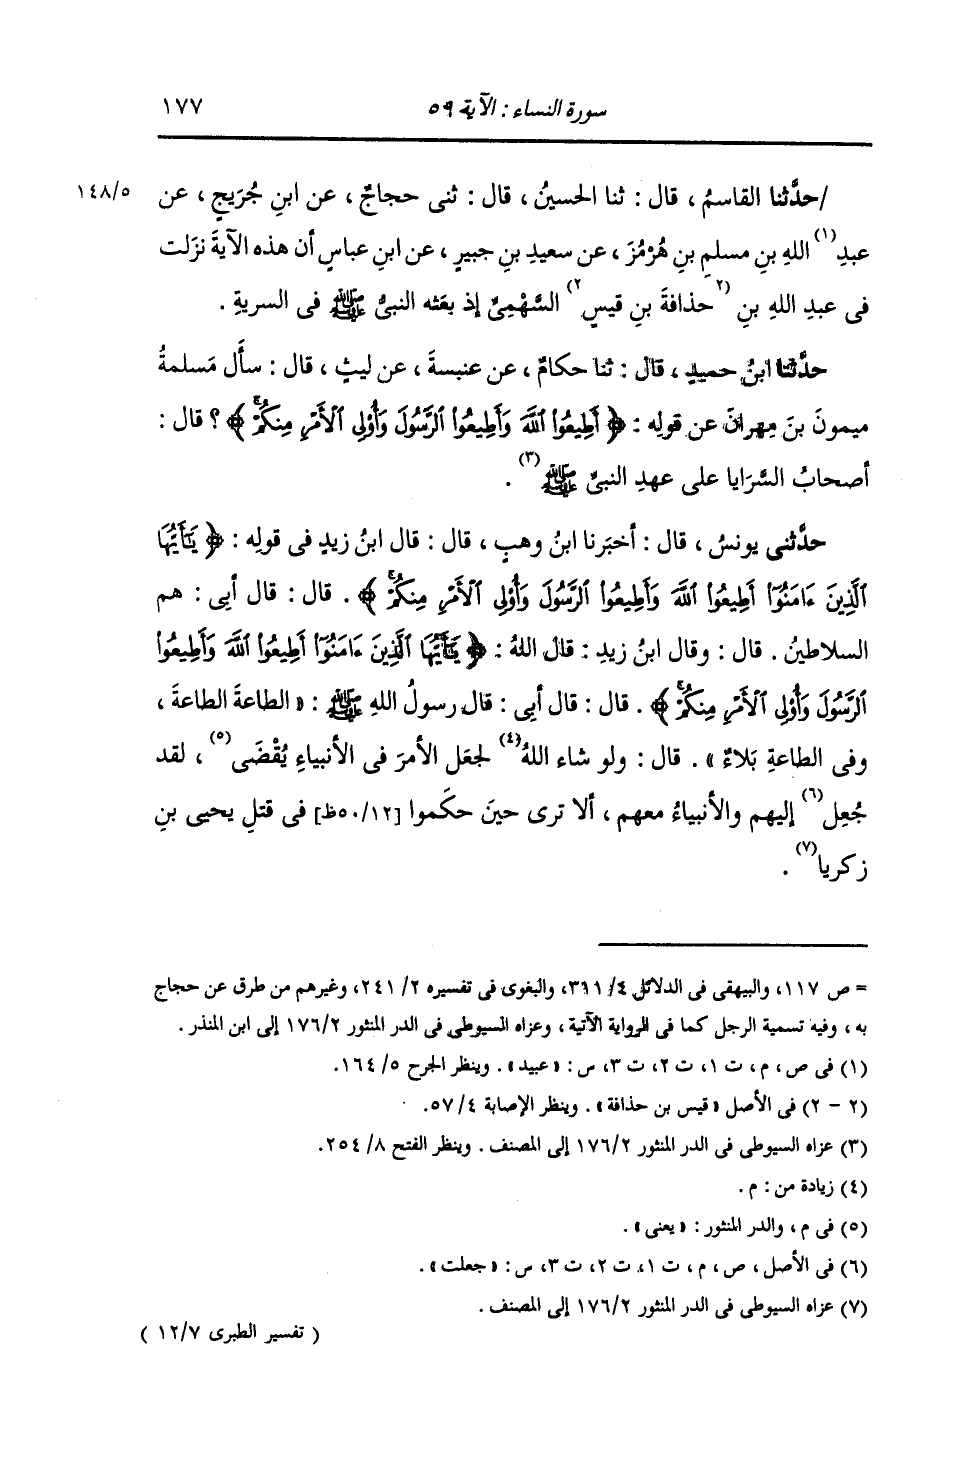 سورة النساء : الآية ٥٩
١٧٧
١٤٨/٥
/حدَّثنا القاسمُ ، قال : ثنا الحسينُ ، قال : ثنى حجاجٌ ، عن ابنِ جُرَيجٍ ، عن
عبدِ(١) اللهِ بنِ مسلمِ بنِ هُرْمُزَ ، عن سعيدِ بنِ جبيرٍ ، عن ابنِ عباسٍ أن هذه الآيةَ نزَلت
فى عبدِ اللهِ بنِ (٢حذافةَ بنِ قيسٍ٢) السَّهْمِىِّ إذ بعَثه النبىُّ ﷺ فى السريةِ .
حدَّثنا ابنُ حميدٍ ، قال : ثنا حكامٌ ، عن عنبسةَ ، عن ليثٍ ، قال : سأَل مَسلمةُ
ميمونَ بنَ مِهرانَ عن قولِه : ﴿ أَطِيعُوا۟ ٱللَّهَ وَأَطِيعُوا۟ ٱلرَّسُولَ وَأُو۟لِى ٱلْأَمْرِ مِنكُمْ ۖ ﴾ ؟ قال :
أصحابُ السَّرَايا على عهدِ النبىِّ ﷺ(٣) .
حدَّثنى يونسُ ، قال : أخبَرنا ابنُ وهبٍ ، قال : قال ابنُ زيدٍ فى قولِه : ﴿ يَٰٓأَيُّهَا
ٱلَّذِينَ ءَامَنُوٓا۟ أَطِيعُوا۟ ٱللَّهَ وَأَطِيعُوا۟ ٱلرَّسُولَ وَأُو۟لِى ٱلْأَمْرِ مِنكُمْ ۖ ﴾ . قال : قال أبى : هم
السلاطينُ . قال : وقال ابنُ زيدٍ : قال اللهُ : ﴿ يَٰٓأَيُّهَا ٱلَّذِينَ ءَامَنُوٓا۟ أَطِيعُوا۟ ٱللَّهَ وَأَطِيعُوا۟
ٱلرَّسُولَ وَأُو۟لِى ٱلْأَمْرِ مِنكُمْ ۖ ﴾ . قال : قال أبى : قال رسولُ اللهِ ﷺ : « الطاعةَ الطاعةَ ،
وفى الطاعةِ بَلاءٌ » . قال : ولو شاء اللهُ(٤) لجعَل الأمرَ فى الأنبياءِ يُقْضَى(٥) ، لقد
جُعِل(٦) إليهم والأنبياءُ معهم ، ألا ترى حينَ حكَموا [٥٠/١٢ظ] فى قتلِ يحيى بنِ
زكريا(٧) .
= ص ١١٧، والبيهقى فى الدلائل ٣١١/٤، والبغوى فى تفسيره ٢٤١/٢، وغيرهم من طرق عن حجاج
به ، وفيه تسمية الرجل كما فى الرواية الآتية ، وعزاه السيوطى فى الدر المنثور ١٧٦/٢ إلى ابن المنذر .
(١) فى ص ، م ، ت ١، ت ٢، ت ٣، س : « عبيد » . وينظر الجرح ١٦٤/٥.
(٢ - ٢) فى الأصل « قيس بن حذافة » . وينظر الإصابة ٥٧/٤.
(٣) عزاه السيوطى فى الدر المنثور ١٧٦/٢ إلى المصنف . وينظر الفتح ٢٥٤/٨.
(٤) زيادة من : م .
(٥) فى م ، والدر المنثور : « يعنى » .
(٦) فى الأصل ، ص ، م ، ت ١، ت ٢، ت ٣، س : « جعلت » .
(٧) عزاه السيوطى فى الدر المنثور ١٧٦/٢ إلى المصنف .
( تفسير الطبرى ١٢/٧ )